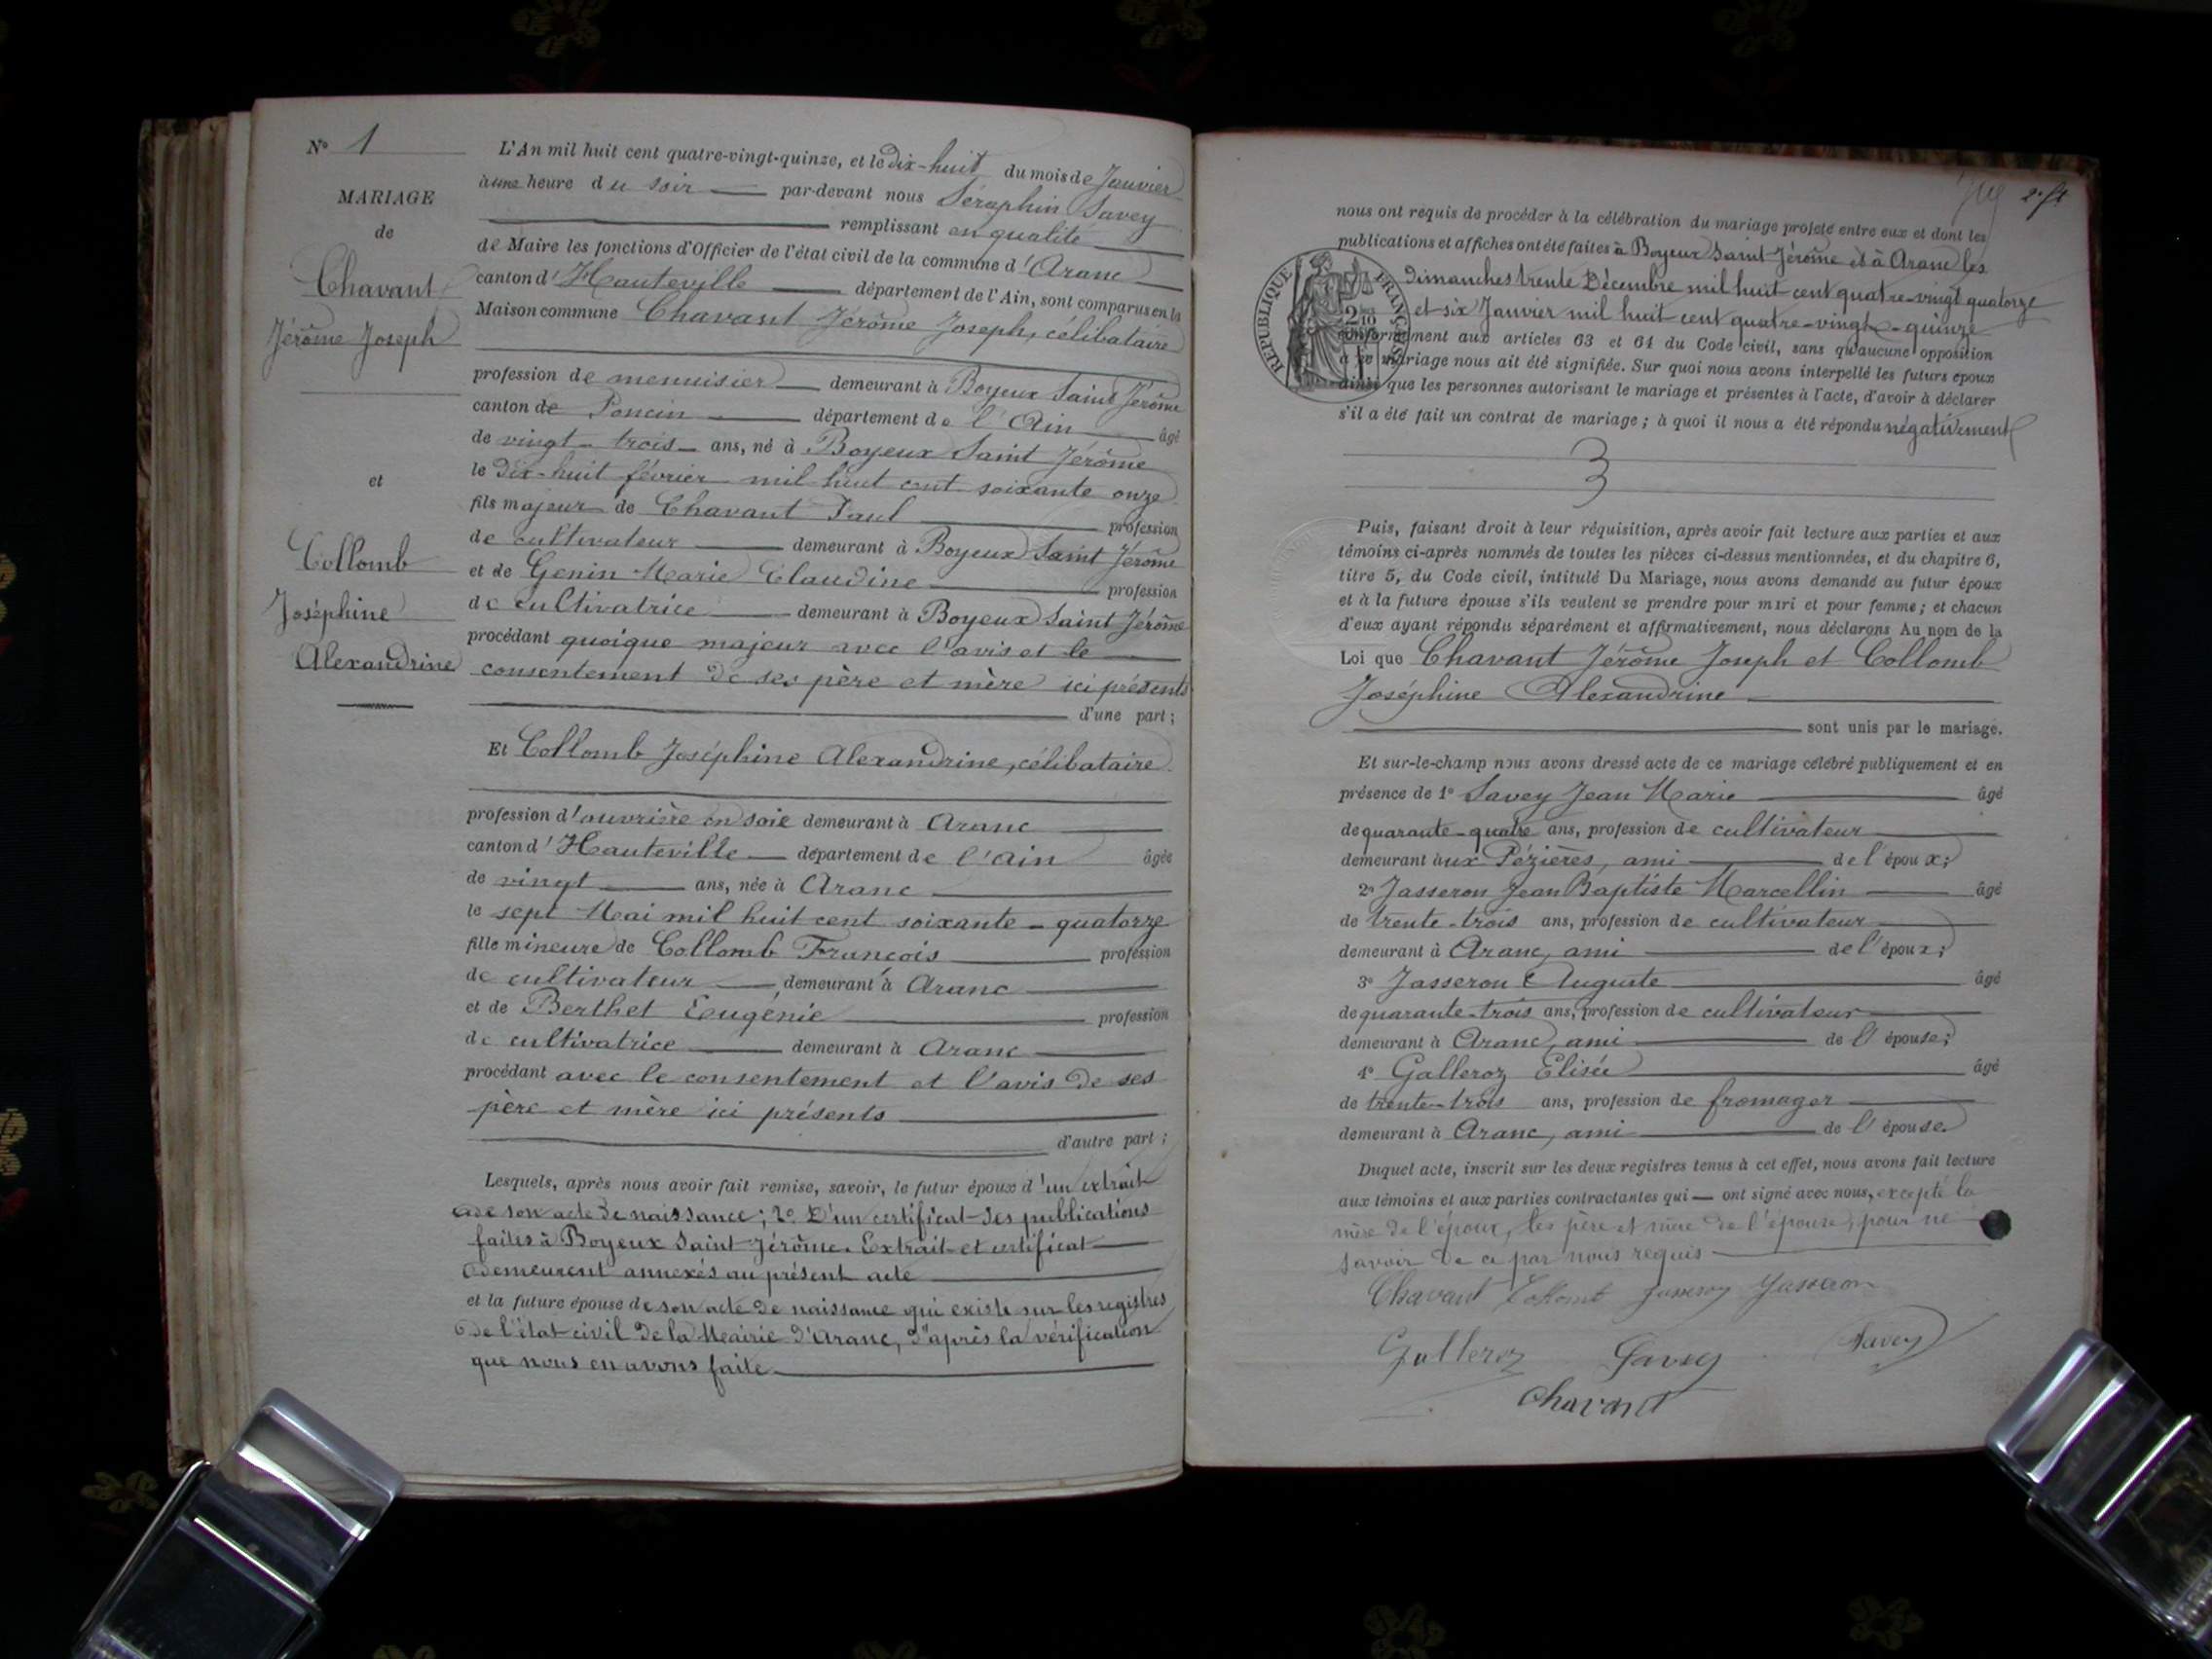 N° 1
MARIAGE
de
Chavant
Jérôme Joseph
et
Collomb
Joséphine
Alexandrine
L'An mil huit cent quatre-vingt-quinze, et le Dix-huit du mois de Janvier
à une heure du soir par-devant nous Séraphin Savey
remplissant en qualité
de Maire les fonctions d'Officier de l'état civil de la commune d'Aranc
canton d'Hauteville département de l'Ain, sont comparus en la
Maison commune Chavant Jérôme Joseph, célibataire
profession de menuisier demeurant à Boyeux Saint Jérôme
canton de Poncin département de l'Ain âgé
de vingt-trois ans, né à Boyeux Saint Jérôme
le Dix-huit février mil huit cent soixante onze
fils majeur de Chavant Paul profession
de cultivateur demeurant à Boyeux Saint Jérôme
et de Genin Marie Claudine profession
de cultivatrice demeurant à Boyeux Saint Jérôme
procédant quoique majeur avec l'avis et le
consentement de ses père et mère ici présents
d'une part ;
Et Collomb Joséphine Alexandrine, célibataire
profession d'ouvrière en soie demeurant à Aranc
canton d'Hauteville département de l'Ain âgée
de vingt ans, née à Aranc
le sept Mai mil huit cent soixante-quatorze
fille mineure de Collomb François profession
de cultivateur, demeurant à Aranc
et de Berthet Eugénie profession
de cultivatrice demeurant à Aranc
procédant avec le consentement et l'avis de ses
père et mère ici présents
d'autre part ;
Lesquels, après nous avoir fait remise, savoir, le futur époux d'un extrait
de son acte de naissance ; 2° D'un certificat des publications
faites à Boyeux Saint-Jérôme. Extrait et certificat
demeurent annexés au présent acte
et la future épouse de son acte de naissance qui existe sur les registres
de l'état civil de la Mairie d'Aranc, d'après la vérification
que nous en avons faite
nous ont requis de procéder à la célébration du mariage projeté entre eux et dont les
publications et affiches ont été faites à Boyeux Saint-Jérôme et à Aranc les
dimanches trente Décembre mil huit cent quatre-vingt quatorze
et six Janvier mil huit cent quatre-vingt-quinze
RÉPUBLIQUE FRANÇAISE
conformément aux articles 63 et 64 du Code civil, sans qu'aucune opposition
à ce mariage nous ait été signifiée. Sur quoi nous avons interpellé les futurs époux
ainsi que les personnes autorisant le mariage et présentes à l'acte, d'avoir à déclarer
s'il a été fait un contrat de mariage ; à quoi il nous a été répondu négativement
Puis, faisant droit à leur réquisition, après avoir fait lecture aux parties et aux
témoins ci-après nommés de toutes les pièces ci-dessus mentionnées, et du chapitre 6,
titre 5, du Code civil, intitulé Du Mariage, nous avons demandé au futur époux
et à la future épouse s'ils veulent se prendre pour mari et pour femme ; et chacun
d'eux ayant répondu séparément et affirmativement, nous déclarons Au nom de la
Loi que Chavant Jérôme Joseph et Collomb
Joséphine Alexandrine
sont unis par le mariage.
Et sur-le-champ nous avons dressé acte de ce mariage célébré publiquement et en
présence de 1° Savey Jean Marie âgé
de quarante-quatre ans, profession de cultivateur
demeurant aux Pézières, ami de l'époux ;
2° Jasseron Jean Baptiste Marcellin âgé
de trente-trois ans, profession de cultivateur
demeurant à Aranc, ami de l'époux ;
3° Jasseron Auguste âgé
de quarante-trois ans, profession de cultivateur
demeurant à Aranc, ami de l'épouse ;
4° Galleroz Elisée âgé
de trente-trois ans, profession de fromager
demeurant à Aranc, ami de l'épouse.
Duquel acte, inscrit sur les deux registres tenus à cet effet, nous avons fait lecture
aux témoins et aux parties contractantes qui ont signé avec nous, excepté la
mère de l'époux, les père et mère de l'épouse, pour ne
savoir de ce par nous requis
Chavant Collomb Jasseron Jasseron
Galleroz Savey Savey
Chavant